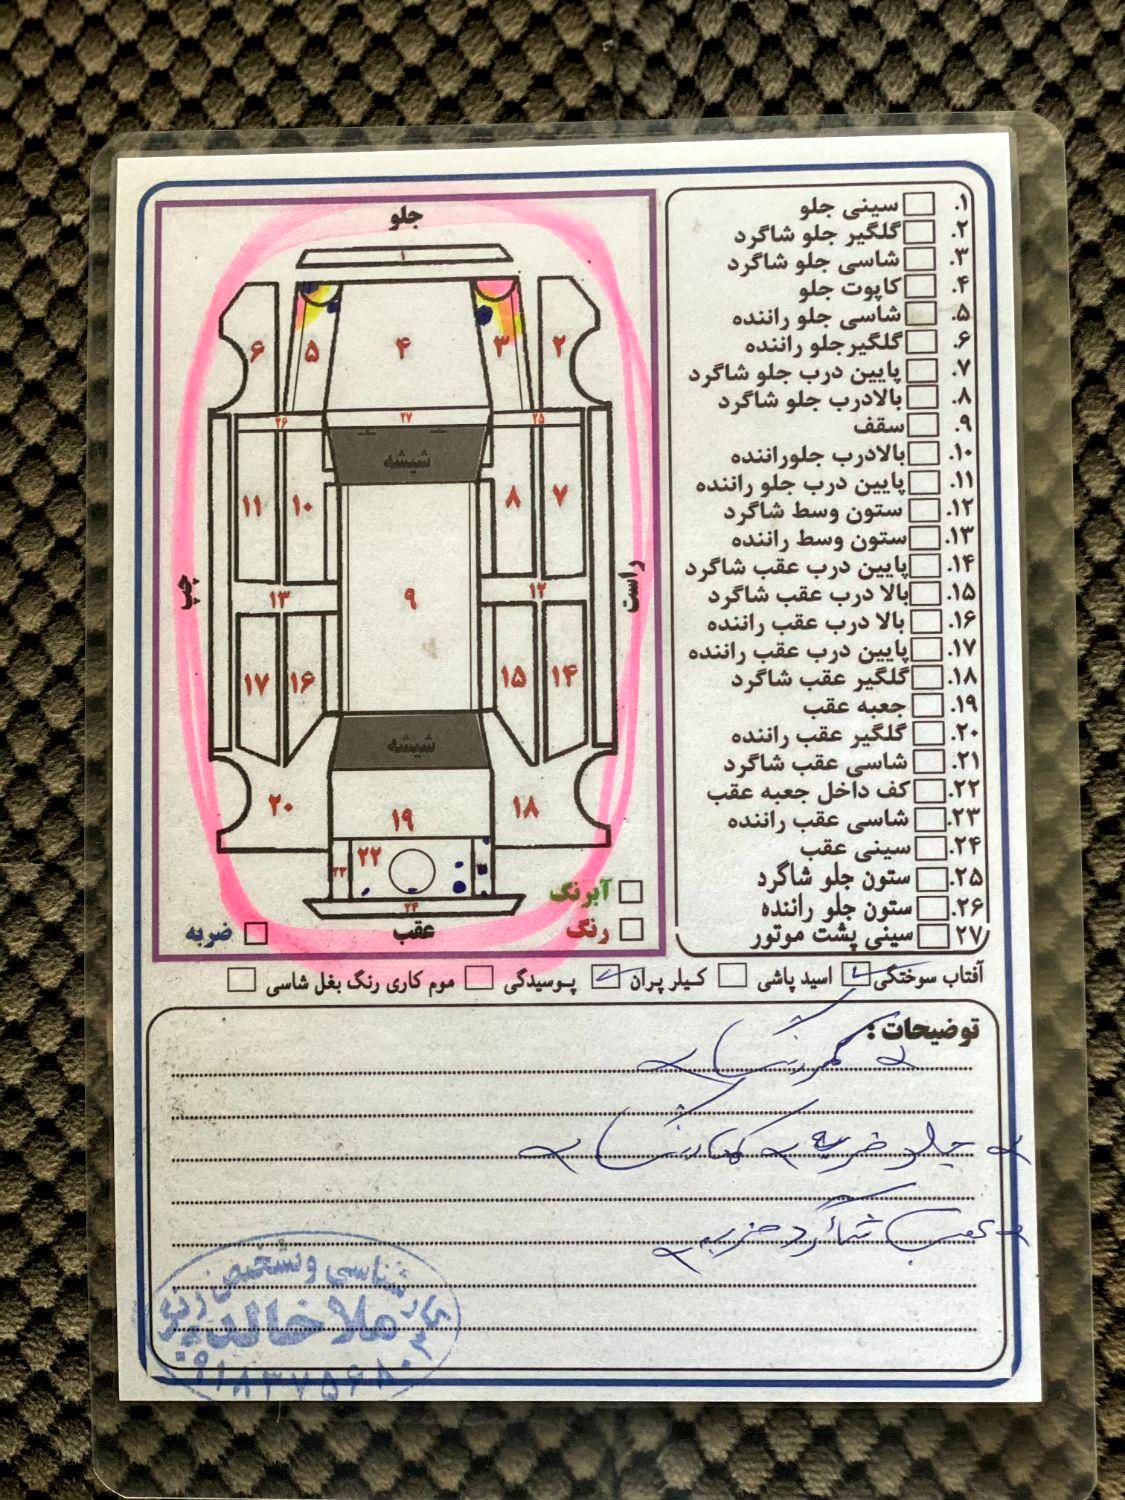 جلو
۱
۶
۵
۴
۳
۲
۲۶
۲۷
۲۵
شیشه
۱۱
۱۰
۸
۷
چپ
راست
۱۳
۹
۱۲
۱۷
۱۶
۱۵
۱۴
شیشه
۲۰
۱۹
۱۸
۲۳
۲۲
۲۴
عقب
آبرنگ
رنگ
ضربه
۱. سینی جلو
۲. گلگیر جلو شاگرد
۳. شاسی جلو شاگرد
۴. کاپوت جلو
۵. شاسی جلو راننده
۶. گلگیرجلو راننده
۷. پایین درب جلو شاگرد
۸. بالادرب جلو شاگرد
۹. سقف
۱۰. بالادرب جلوراننده
۱۱. پایین درب جلو راننده
۱۲. ستون وسط شاگرد
۱۳. ستون وسط راننده
۱۴. پایین درب عقب شاگرد
۱۵. بالا درب عقب شاگرد
۱۶. بالا درب عقب راننده
۱۷. پایین درب عقب راننده
۱۸. گلگیر عقب شاگرد
۱۹. جعبه عقب
۲۰. گلگیر عقب راننده
۲۱. شاسی عقب شاگرد
۲۲. کف داخل جعبه عقب
۲۳. شاسی عقب راننده
۲۴. سینی عقب
۲۵. ستون جلو شاگرد
۲۶. ستون جلو راننده
۲۷ سینی پشت موتور
آفتاب سوختگی اسید پاشی کیلر پران پوسیدگی موم کاری رنگ بغل شاسی
توضیحات :
جلو ضربه
عقب شاگرد ضربه
کارشناسی و تشخیص رنگ
ملا خالد